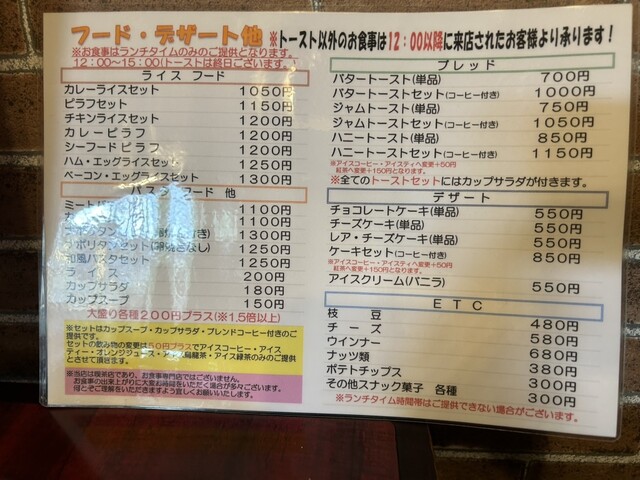 フード・デザート他
※トースト以外のお食事は12:00以降に来店されたお客様より承ります!
※お食事はランチタイムのみのご提供となります。
12:00~15:00(トーストは終日ございます。)
ライス フード
カレーライスセット 1050円
ピラフセット 1150円
チキンライスセット 1200円
カレーピラフ 1200円
シーフードピラフ 1200円
ハム・エッグライスセット 1250円
ベーコン・エッグライスセット 1300円
フード 他
1100円
1100円
1300円
ナポリタンセット 1250円
和風パスタセット 1250円
ライス 200円
カップサラダ 180円
カップスープ 150円
大盛り各種200円プラス(※1.5倍以上)
※セットはカップスープ・カップサラダ・ブレンドコーヒー付きのご
提供です。
セットの飲み物の変更は50円プラスでアイスコーヒー・アイス
ティー・オレンジジュース・烏龍茶・アイス緑茶のみのご提供
とさせて頂きます。
※当店は喫茶店であり、お食事専門店ではございません。
お食事の出来上がりに大変お時間をいただく場合が多々ございます。
何とぞご理解をいただきますよう宜しくお願いいたします。
ブレッド
バタートースト(単品) 700円
バタートーストセット(コーヒー付き) 1000円
ジャムトースト(単品) 750円
ジャムトーストセット(コーヒー付き) 1050円
ハニートースト(単品) 850円
ハニートーストセット(コーヒー付き) 1150円
※アイスコーヒー・アイスティへ変更+50円
紅茶へ変更+150円となります。
※全てのトーストセットにはカップサラダが付きます。
デザート
チョコレートケーキ(単品) 550円
チーズケーキ(単品) 550円
レア・チーズケーキ(単品) 550円
ケーキセット(コーヒー付き) 850円
※アイスコーヒー・アイスティへ変更+50円
紅茶へ変更+150円となります。
アイスクリーム(バニラ) 550円
ETC
枝 豆 480円
チーズ 580円
ウインナー 680円
ナッツ類 380円
ポテトチップス 300円
その他スナック菓子 各種 300円
※ランチタイム時間帯はご提供できない場合がございます。